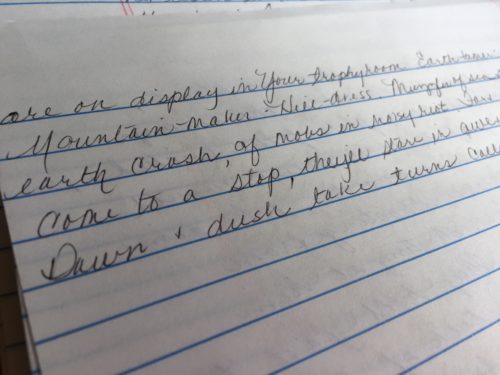 are on display in Your trophyroom Earth-tamer
Mountain-maker. Hill-dress. of sea
earth crash, of mobs in noisy riot
come to a stop, they'll stare in
Dawn & dusk take turns